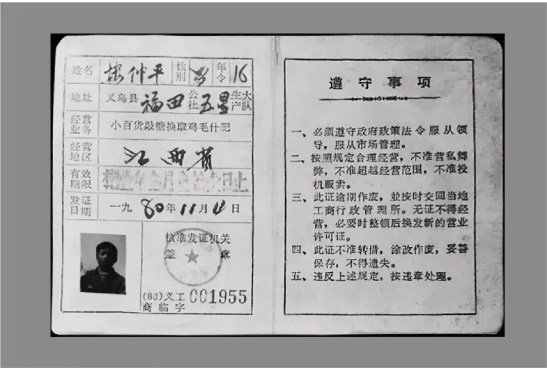 姓名 仲平 性别 男 年令 16
地址 义乌县福田公社五星生产大队
经营业务 小百货敲糖换取鸡毛什肥
经营地区 江西省
有效期限
发证日期 一九80年11月4日
核准发证机关
签章
(80)义工商临字 001955
遵守事项
一、必须遵守政府政策法令服从领
导，服从市场管理。
二、按照规定合理经营，不准营私舞
弊，不准超越经营范围，不准投
机贩卖。
三、此证逾期作废，并按时交回当地
工商行政管理所。无证不得经
营，必要时整顿后换发新的营业
许可证。
四、此证不准转借，涂改作废，妥善
保存，不得遗失。
五、违反上述规定，按违章处理。